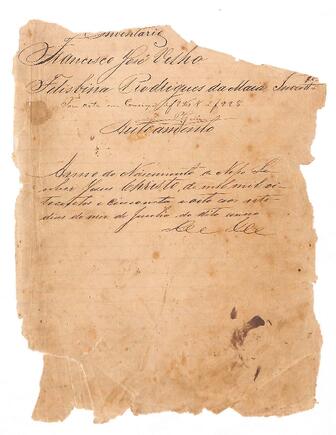 Inventario
Francisco José Velho
Felisbina Rodrigues da Maia Invent
Autoamento
Anno do Nascimento de Nosso Se
nhor Jesus Christo de mil oi
tocentos e cincoenta e oito aos sete
dias do mez de Junho do dito anno